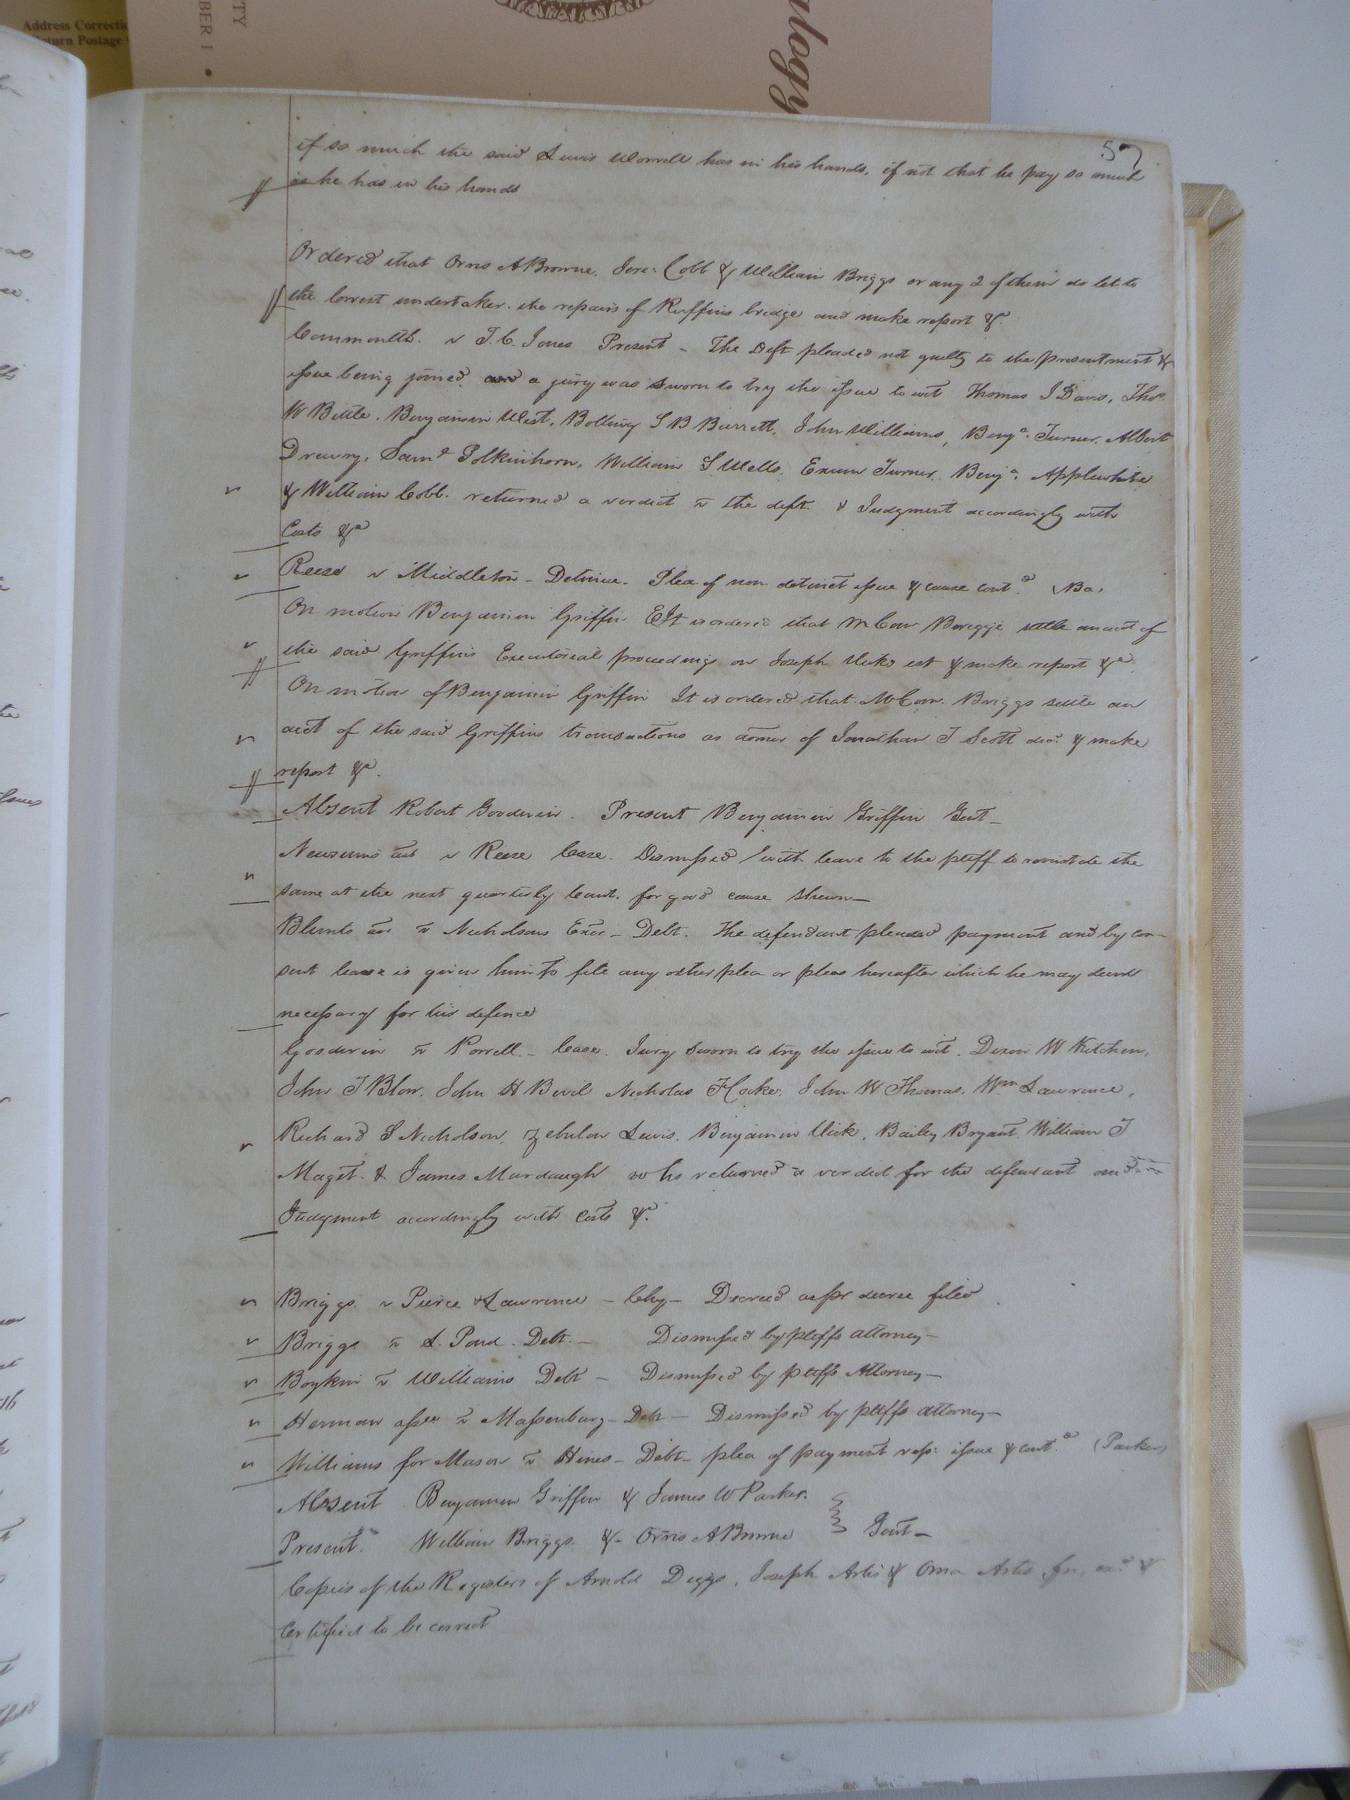 Address Correcti
Return Postage
TY
BER 1 •
ology
57
if so much the said Lewis Worrell has in his hands, if not that he pay so much
as he has in his hands
Ordered that Orris A Browne, Jere: Cobb & William Briggs or any 2 of them do let to
the lowest undertaker, the repairs of Ruffins bridge and make report &c
Commonwlth. v T. C. Jones Present - The Deft pleaded not guilty to the presentment &
issue being joined and a jury was sworn to try the issue to wit Thomas J Davis, Thos
W Bittle, Benjamin West, Bolling S B Barrett, John Williams, Benja. Turner, Albert
Drewry, Saml Polkinhorn, William S Wells, Exum Turner, Benja. Applewhite
& William Cobb. returned a verdict v the deft. & Judgment accordingly with
Costs &a
Reese v Middleton - Detinue. Plea of non detinet issue & cause contd.
On motion Benjamin Griffin It is ordered that M Com Briggs settle amount of
the said Griffins Executorial proceedings on Joseph Vicks est & make report &a
On motion of Benjamin Griffin It is ordered that M Com. Briggs settle an
acct of the said Griffins transactions as admr of Jonathan T Scott dec. & make
report &a.
Absent Robert Goodwin. Present Benjamin Griffin Gent -
Newsums v Reese Case. Dismissed with leave to the pltff to reinstate the
same at the next quarterly Court, for good cause shewn -
Blunts v Nicholsons Exor - Debt. The defendant pleaded payment and by con-
sent leave is given him to file any other plea or pleas hereafter which he may deem
necessary for his defence
Goodwin v Porrell - Case. Jury sworn to try the issue to wit. Dixon W Kitchen,
John T Blow, John H Bevil Nicholas Hocke, John W Thomas, Wm Lawrence,
Richard S Nicholson, Zebulon Lewis, Benjamin Vick, Bailey Bryant, William T
Maget & James Murdaugh who returned a verdict for the defendant and
Judgment accordingly with Costs &c.
Briggs v Peirce & Lawrence - Chy - Decreed as pr decree filed
Briggs v S. Pond. Debt. - Dismissed by pltffs attorney -
Boykin v Williams Debt - Dismissed by pltffs Attorney -
Herman assee v Massenburg - Debt - Dismissed by pltffs attorney -
Williams for Mason v Hines - Debt - plea of payment rep: issue & contd. (Parker)
Absent Benjamin Griffin & James W Parker.
Present. William Briggs & Orris A Browne } Gent -
Copies of the Registers of Arnold Diggs, Joseph Artis & Oma Artis &
Certified to be correct